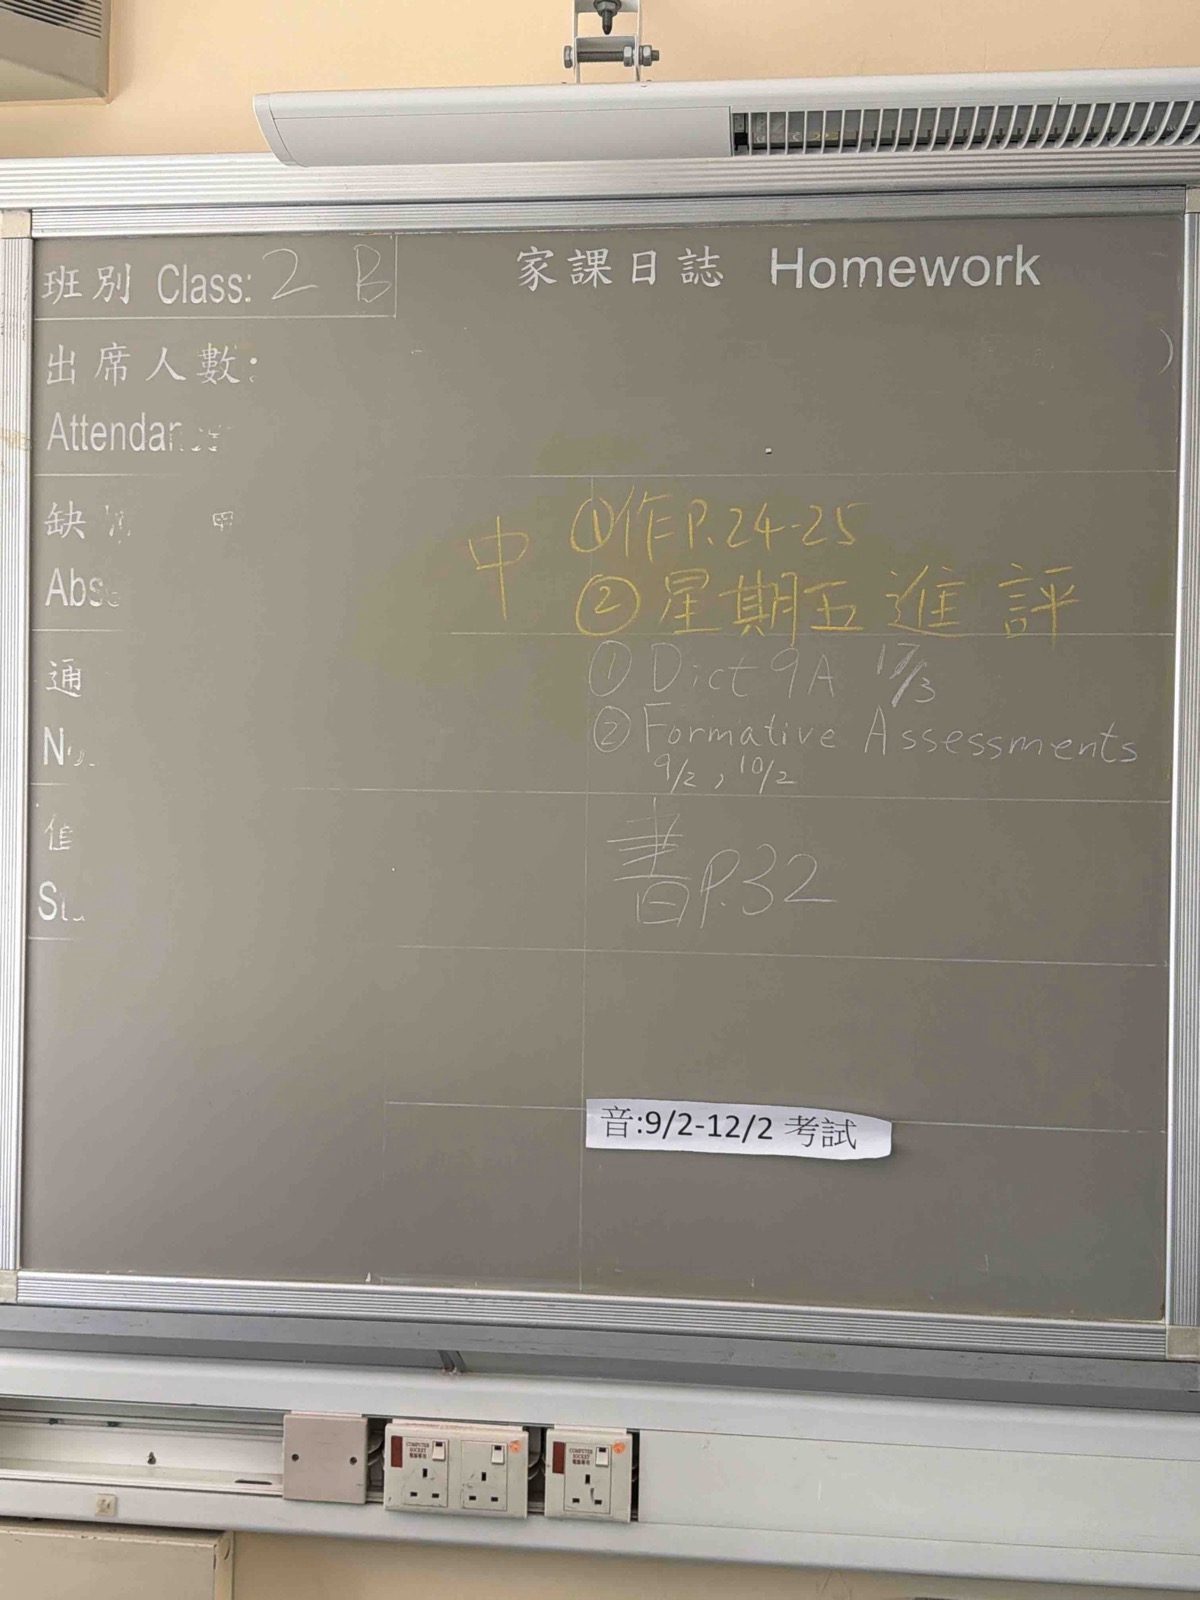 班別 Class: 2 B
家課日誌 Homework
出席人數:
Attendan
缺
Abs
中 ①作P.24-25
②星期五進評
通
N
① Dict 9A 17/3
② Formative Assessments
9/2, 10/2
書P.32
音:9/2-12/2 考試
COMPUTER SOCKET
COMPUTER SOCKET